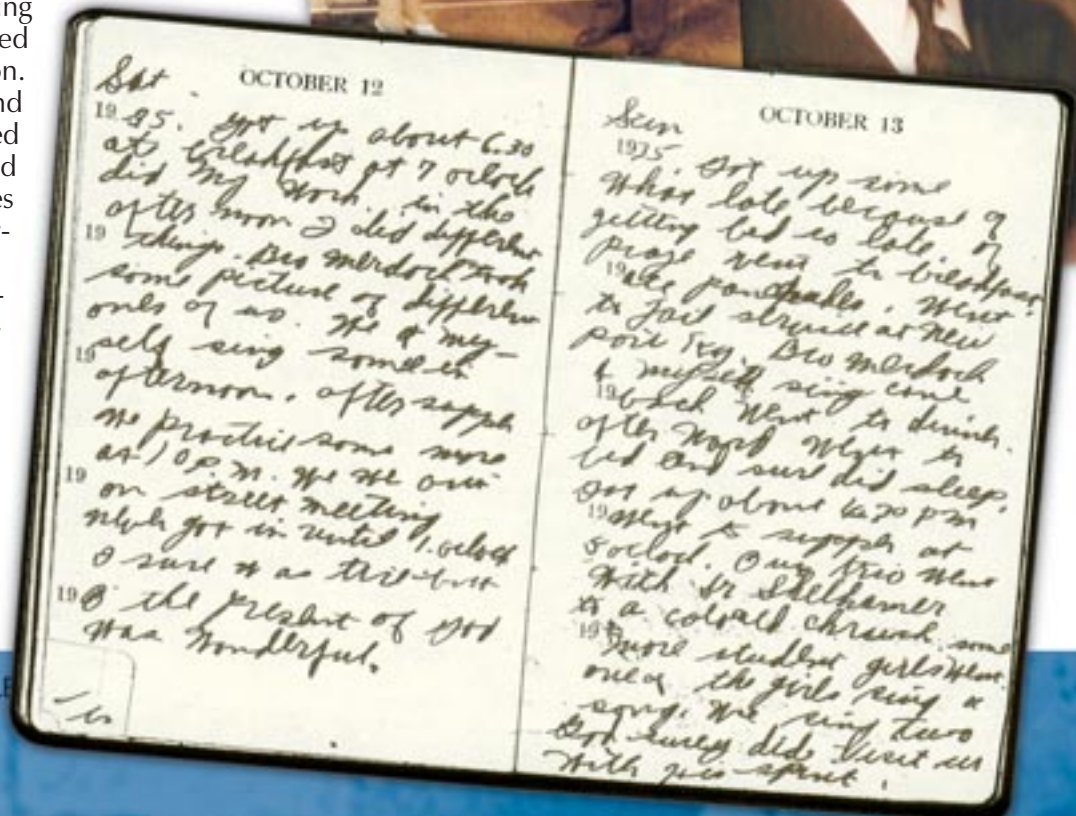 ing
ed
on.
nd
ed
d
es
-
-
OCTOBER 12
Sat
19 35. got up about 6.30
at breakfast at 7 oclock
did my work. in the
after noon I did different
19 things. Bro Merdock took
some picture of different
ones of us. He & my-
19 self sing some in
afternoon. after supper
we practice some more
at 10 P.M. we we out
19 on street meeting
got in until 1. oclock
I sure was
19 the present of god
was wonderful.
OCTOBER 13
Sun
1935. got up some
what late because of
getting bed so late of
went to breakfast
19 ate pancakes. Went
to jail at New
port Ky. Bro Merdock
& myself sing came
19 back went to dinner.
after word went to
bed and sure did sleep.
got up about 4.30 pm
19 went to supper at
5 oclock. Our trio went
with Dr Shelhamer
to a colored church some
19 more student girls went.
one of the girls sing a
song. We sing two
God surely did visit us
with his sprit.